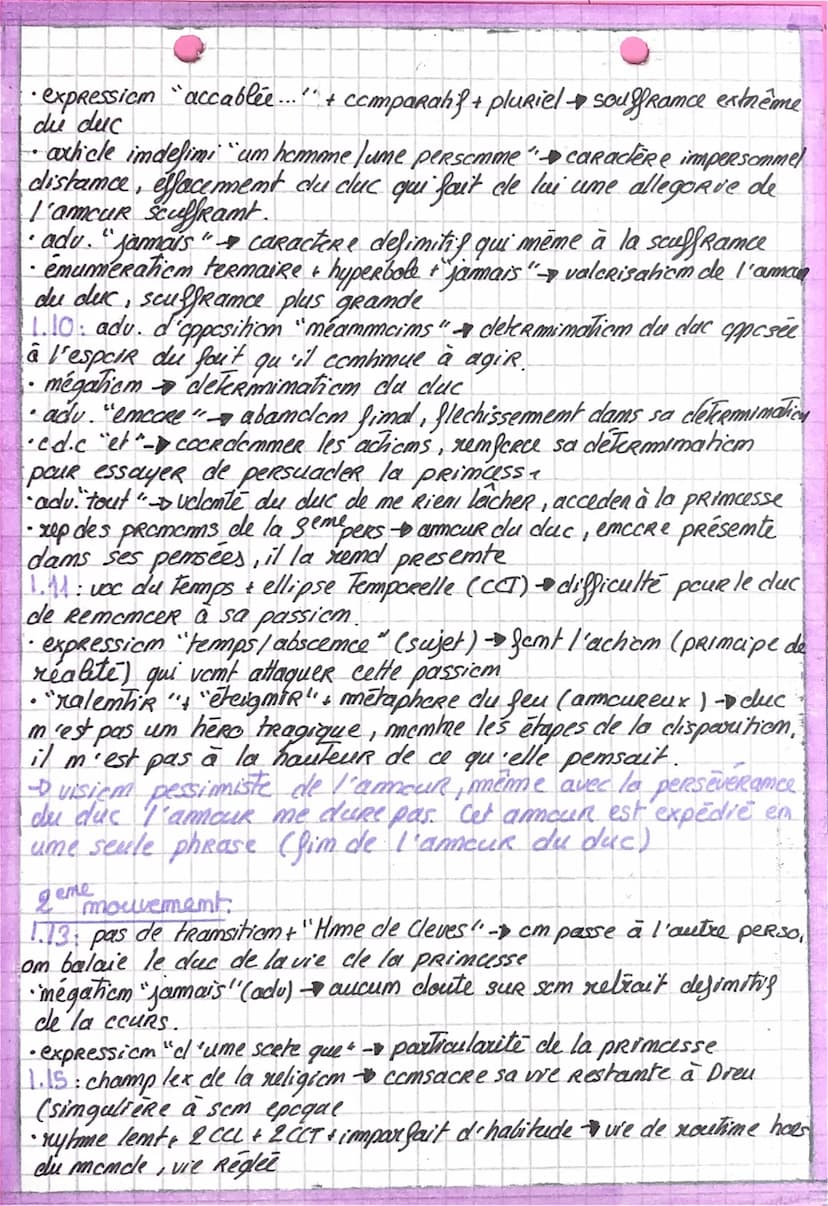 · expression "accablée..." + comparatif + pluriel → souffrance extrême
du duc
· article indefini "un homme/une personne" → caractère impersonnel
distance, effacement du duc qui fait de lui une allegorie de
l'amour souffrant.
· adv. "jamais" → caractere definitif qui mène à la souffrance
· énumeration ternaire + hyperbole + "jamais" → valorisation de l'amour
du duc, souffrance plus grande
l.10: adv. d'opposition "néanmoins" → determination du duc opposée
à l'espoir du fait qu'il continue à agir.
· négation → determination du duc
· adv. "encore" → abandon final, flechissement dans sa détermination
· c.d.c "et" → coordonner les actions, renforce sa détermination
pour essayer de persuader la princesse
· adv. "tout" → volonté du duc de ne rien lâcher, acceder à la princesse
· rep des pronoms de la 3eme pers → amour du duc, encore présente
dans ses pensées, il la rend presente
l.11: voc du temps + ellipse temporelle (CCT) → difficulté pour le duc
de renoncer à sa passion.
· expression "temps/abscence" (sujet) → font l'action (principe de
réalité) qui vont attaquer cette passion
· "ralentir" + "éteignir" + métaphore du feu (amoureux) → duc
n'est pas un héro tragique, montre les étapes de la disparition,
il n'est pas à la hauteur de ce qu'elle pensait.
→ vision pessimiste de l'amour, même avec la perséverance
du duc l'amour ne dure pas. Cet amour est expédié en
une seule phrase (fin de l'amour du duc)
2eme mouvement:
l.13: pas de transition + "Mme de Cleves" → on passe à l'autre perso,
on balaie le duc de la vie de la princesse
· négation "jamais" (adv) → aucun doute sur son retrait definitif
de la cours.
· expression "d'une sorte que" → particularité de la princesse
l.15: champ lex de la religion → consacre sa vie restante à Dieu
(singulière à son epoque
· rytme lent, 2 CCL + 2 CCT + imparfait d'habitude → vie de routine hors
du monde, vie réglée